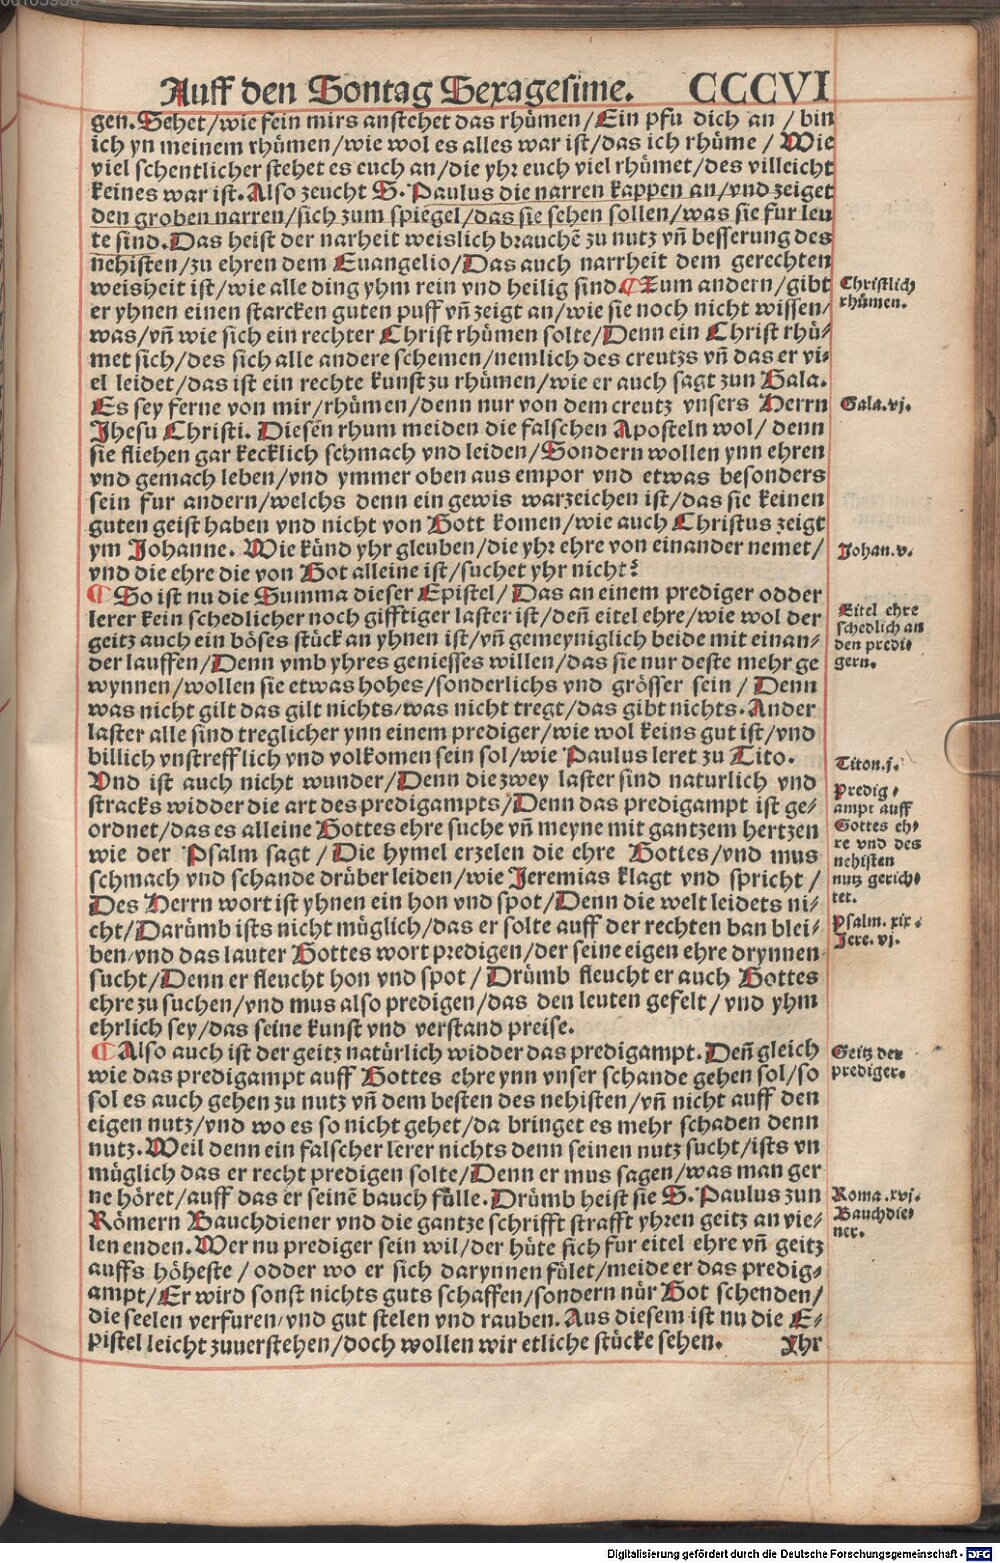 Auff den Sontag Sexagesime. CCCVI
gen. Sehet/wie fein mirs anstehet das rhümen/Ein pfu dich an/bin
ich yn meinem rhümen/wie wol es alles war ist/das ich rhüme/Wie
viel schentlicher stehet es euch an/die yhr euch viel rhümet/des villeicht
keines war ist. Also zeucht S. Paulus die narren kappen an/vnd zeiget
den groben narren/sich zum spiegel/das sie sehen sollen/was sie fur leu
te sind. Das heist der narheit weislich brauchē zu nutz vñ besserung des
nehisten/zu ehren dem Euangelio/Das auch narrheit dem gerechten
weisheit ist/wie alle ding yhm rein vnd heilig sind. ¶Zum andern/gibt
er yhnen einen starcken guten puff vñ zeigt an/wie sie noch nicht wissen/
was/vñ wie sich ein rechter Christ rhümen solte/Denn ein Christ rhü⸗
met sich/des sich alle andere schemen/nemlich des creutzs vñ das er vi⸗
el leidet/das ist ein rechte kunst zu rhümen/wie er auch sagt zun Gala.
Es sey ferne von mir/rhümen/denn nur von dem creutz vnsers Herrn
Jhesu Christi. Diesen rhum meiden die falschen Aposteln wol/denn
sie fliehen gar kecklich schmach vnd leiden/Sondern wollen ynn ehren
vnd gemach leben/vnd ymmer oben aus empor vnd etwas besonders
sein fur andern/welchs denn ein gewis warzeichen ist/das sie keinen
guten geist haben vnd nicht von Gott komen/wie auch Christus zeigt
ym Johanne. Wie künd yhr gleuben/die yhr ehre von einander nemet/
vnd die ehre die von Got alleine ist/suchet yhr nicht?
¶So ist nu die Summa dieser Epistel/Das an einem prediger odder
lerer kein schedlicher noch gifftiger laster ist/deñ eitel ehre/wie wol der
geitz auch ein böses stück an yhnen ist/vñ gemeyniglich beide mit einan⸗
der lauffen/Denn vmb yhres geniesses willen/das sie nur deste mehr ge
wynnen/wollen sie etwas hohes/sonderlichs vnd grösser sein/Denn
was nicht gilt das gilt nichts/was nicht tregt/das gibt nichts. Ander
laster alle sind treglicher ynn einem prediger/wie wol keins gut ist/vnd
billich vnstrefflich vnd volkomen sein sol/wie Paulus leret zu Tito.
Vnd ist auch nicht wunder/Denn die zwey laster sind naturlich vnd
stracks widder die art des predigampts/Denn das predigampt ist ge⸗
ordnet/das es alleine Gottes ehre suche vñ meyne mit gantzem hertzen
wie der Psalm sagt/Die hymel erzelen die ehre Gottes/vnd mus
schmach vnd schande drüber leiden/wie Jeremias klagt vnd spricht/
Des Herrn wort ist yhnen ein hon vnd spot/Denn die welt leidets ni⸗
cht/Darümb ists nicht müglich/das er solte auff der rechten ban blei⸗
ben/vnd das lauter Gottes wort predigen/der seine eigen ehre drynnen
sucht/Denn er fleucht hon vnd spot/Drümb fleucht er auch Gottes
ehre zu suchen/vnd mus also predigen/das den leuten gefelt/vnd yhm
ehrlich sey/das seine kunst vnd verstand preise.
¶Also auch ist der geitz natürlich widder das predigampt. Deñ gleich
wie das predigampt auff Gottes ehre ynn vnser schande gehen sol/so
sol es auch gehen zu nutz vñ dem besten des nehisten/vñ nicht auff den
eigen nutz/vnd wo es so nicht gehet/da bringet es mehr schaden denn
nutz. Weil denn ein falscher lerer nichts denn seinen nutz sucht/ists vn
müglich das er recht predigen solte/Denn er mus sagen/was man ger
ne höret/auff das er seinē bauch fülle. Drümb heist sie S. Paulus zun
Römern Bauchdiener vnd die gantze schrifft strafft yhren geitz an vie⸗
len enden. Wer nu prediger sein wil/der hüte sich fur eitel ehre vñ geitz
auffs höheste/odder wo er sich darynnen fület/meide er das predig⸗
ampt/Er wird sonst nichts guts schaffen/sondern nür Got schenden/
die seelen verfuren/vnd gut stelen vnd rauben. Aus diesem ist nu die E⸗
pistel leicht zuuerstehen/doch wollen wir etliche stücke sehen. Yhr
Christlich
rhümen.
Gala. vj.
Johan. v.
Eitel ehre
schedlich an
den predi⸗
gern.
Titon. j.
Predig⸗
ampt auff
Gottes eh⸗
re vnd des
nehisten
nutz gerich⸗
tet.
Psalm. xix.
Jere. vj.
Geitz der
prediger.
Roma. xvj.
Bauchdie⸗
ner.
Digitalisierung gefördert durch die Deutsche Forschungsgemeinschaft - DFG